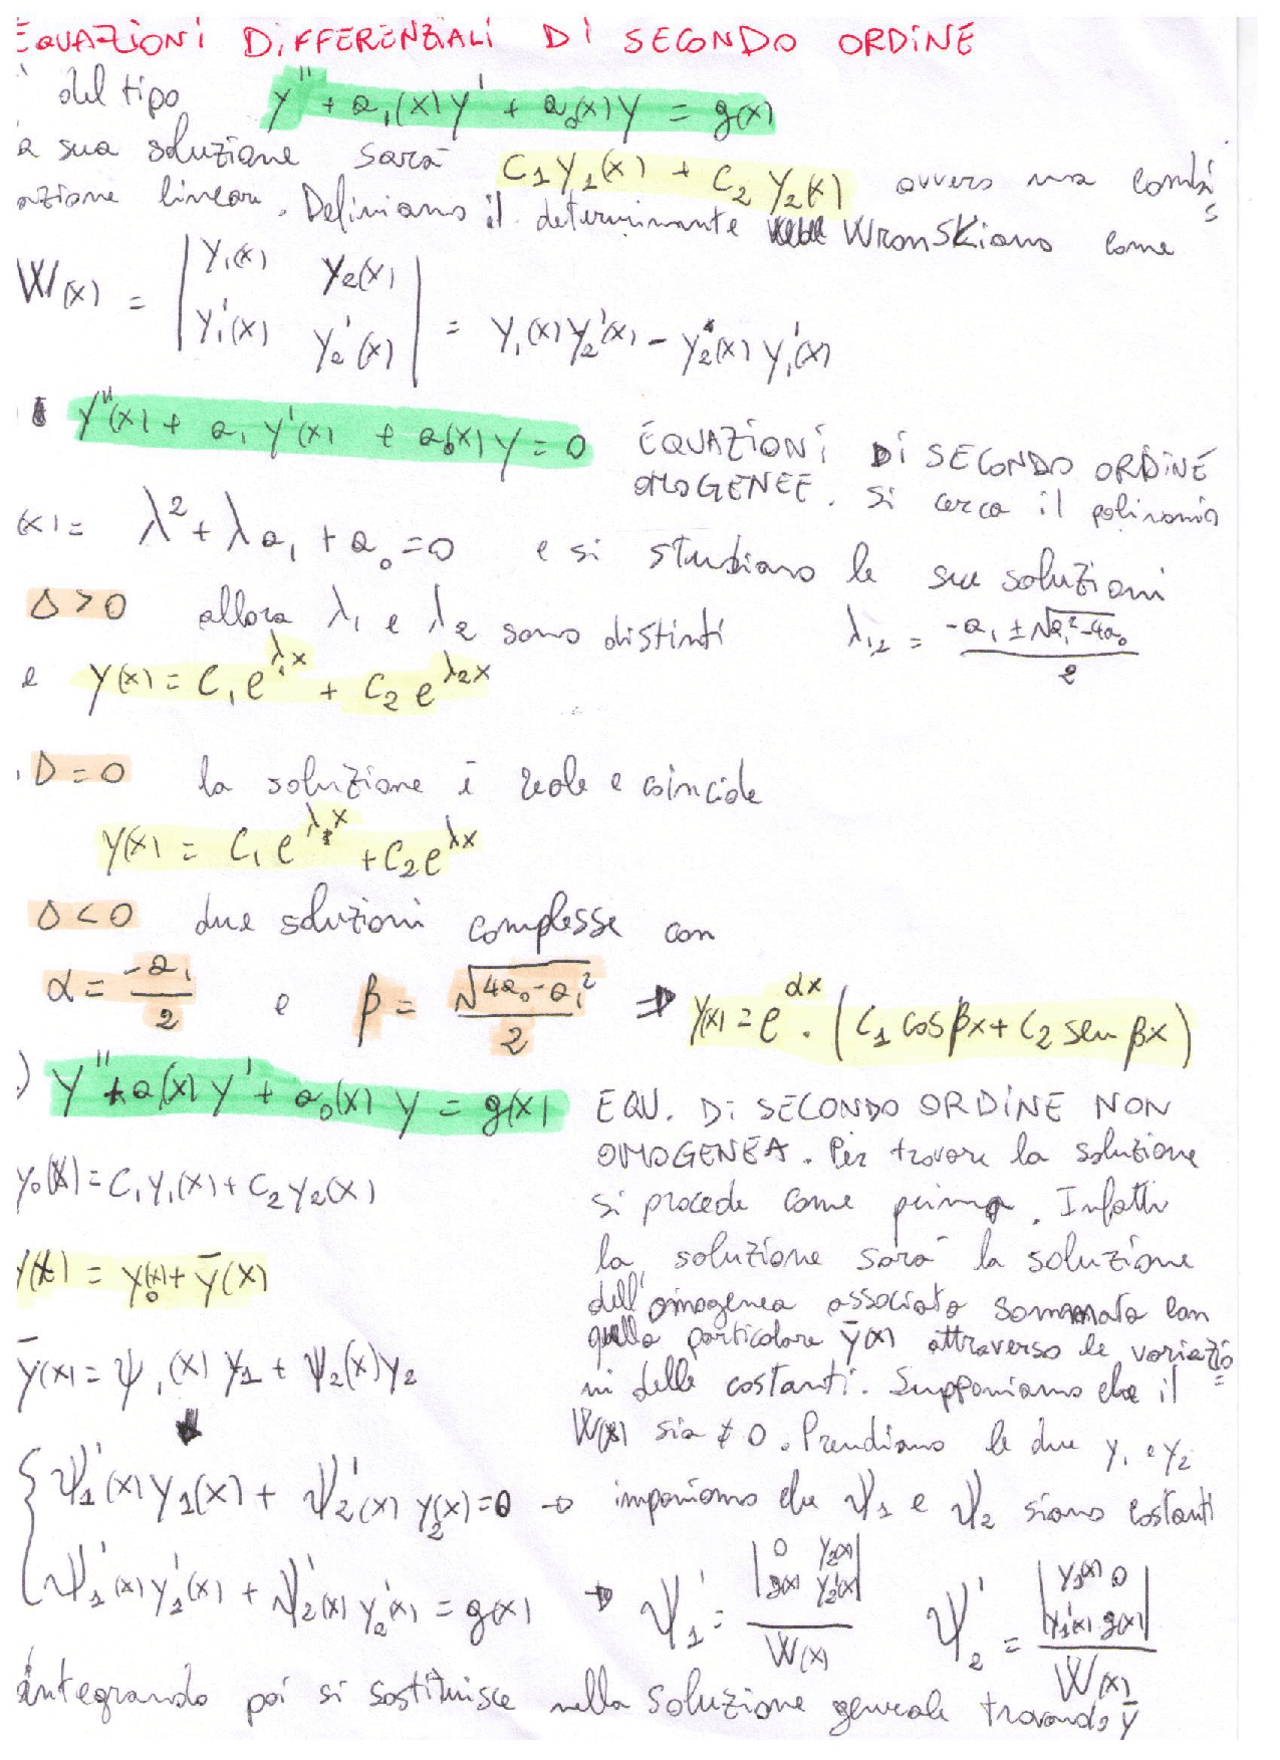 EQUAZIONI DIFFERENZIALI DI SECONDO ORDINE
del tipo y'' + a₁(x)y' + a₀(x)y = g(x)
a sua soluzione sarà C₁y₁(x) + C₂y₂(x) ovvero una combi
azione lineare. Definiamo il determinante Wronskiano come
W(x) = | y₁(x) y₂(x) ; y₁'(x) y₂'(x) | = y₁(x)y₂'(x) - y₂(x)y₁'(x)
y''(x) + a₁y'(x) + a₀(x)y = 0 EQUAZIONI DI SECONDO ORDINE
OMOGENEE. Si cerca il polinomio
(x) = λ² + λa₁ + a₀ = 0 e si studiano le sue soluzioni
Δ > 0 allora λ₁ e λ₂ sono distinti λ₁,₂ = (-a₁ ± √(a₁² - 4a₀)) / 2
e y(x) = C₁e^(λ₁x) + C₂e^(λ₂x)
D = 0 la soluzione è reale e coincide
y(x) = C₁e^(λx) + C₂e^(λx)
Δ < 0 due soluzioni complesse con
α = -a₁/2 e β = √(4a₀ - a₁²)/2 ⇒ y(x) = e^(αx) · (C₁ cos βx + C₂ sen βx)
) y'' + a(x)y' + a₀(x)y = g(x) EQU. DI SECONDO ORDINE NON
OMOGENEA. Per trovare la soluzione
y₀(x) = C₁y₁(x) + C₂y₂(x) si procede come prima. Infatti
la soluzione sarà la soluzione
y(x) = y₀(x) + ȳ(x) dell'omogenea associata sommata con
quella particolare ȳ(x) attraverso le variazio
ȳ(x) = ψ₁(x)y₁ + ψ₂(x)y₂ ni delle costanti. Supponiamo che il
W(x) sia ≠ 0. Prendiamo le due y₁ e y₂
ψ₁'(x)y₁(x) + ψ₂'(x)y₂(x) = 0 → imponiamo che ψ₁ e ψ₂ siano costanti
ψ₁'(x)y₁'(x) + ψ₂'(x)y₂'(x) = g(x) → ψ₁' = | 0 y₂(x) ; g(x) y₂'(x) | / W(x) ψ₂' = | y₁(x) 0 ; y₁'(x) g(x) | / W(x)
integrando poi si sostituisce nella soluzione generale trovando ȳ